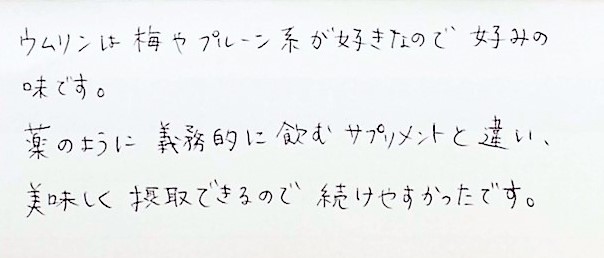 ウムリンは梅やプルーン系が好きなので好みの
味です。
薬のように義務的に飲むサプリメントと違い、
美味しく摂取できるので続けやすかったです。